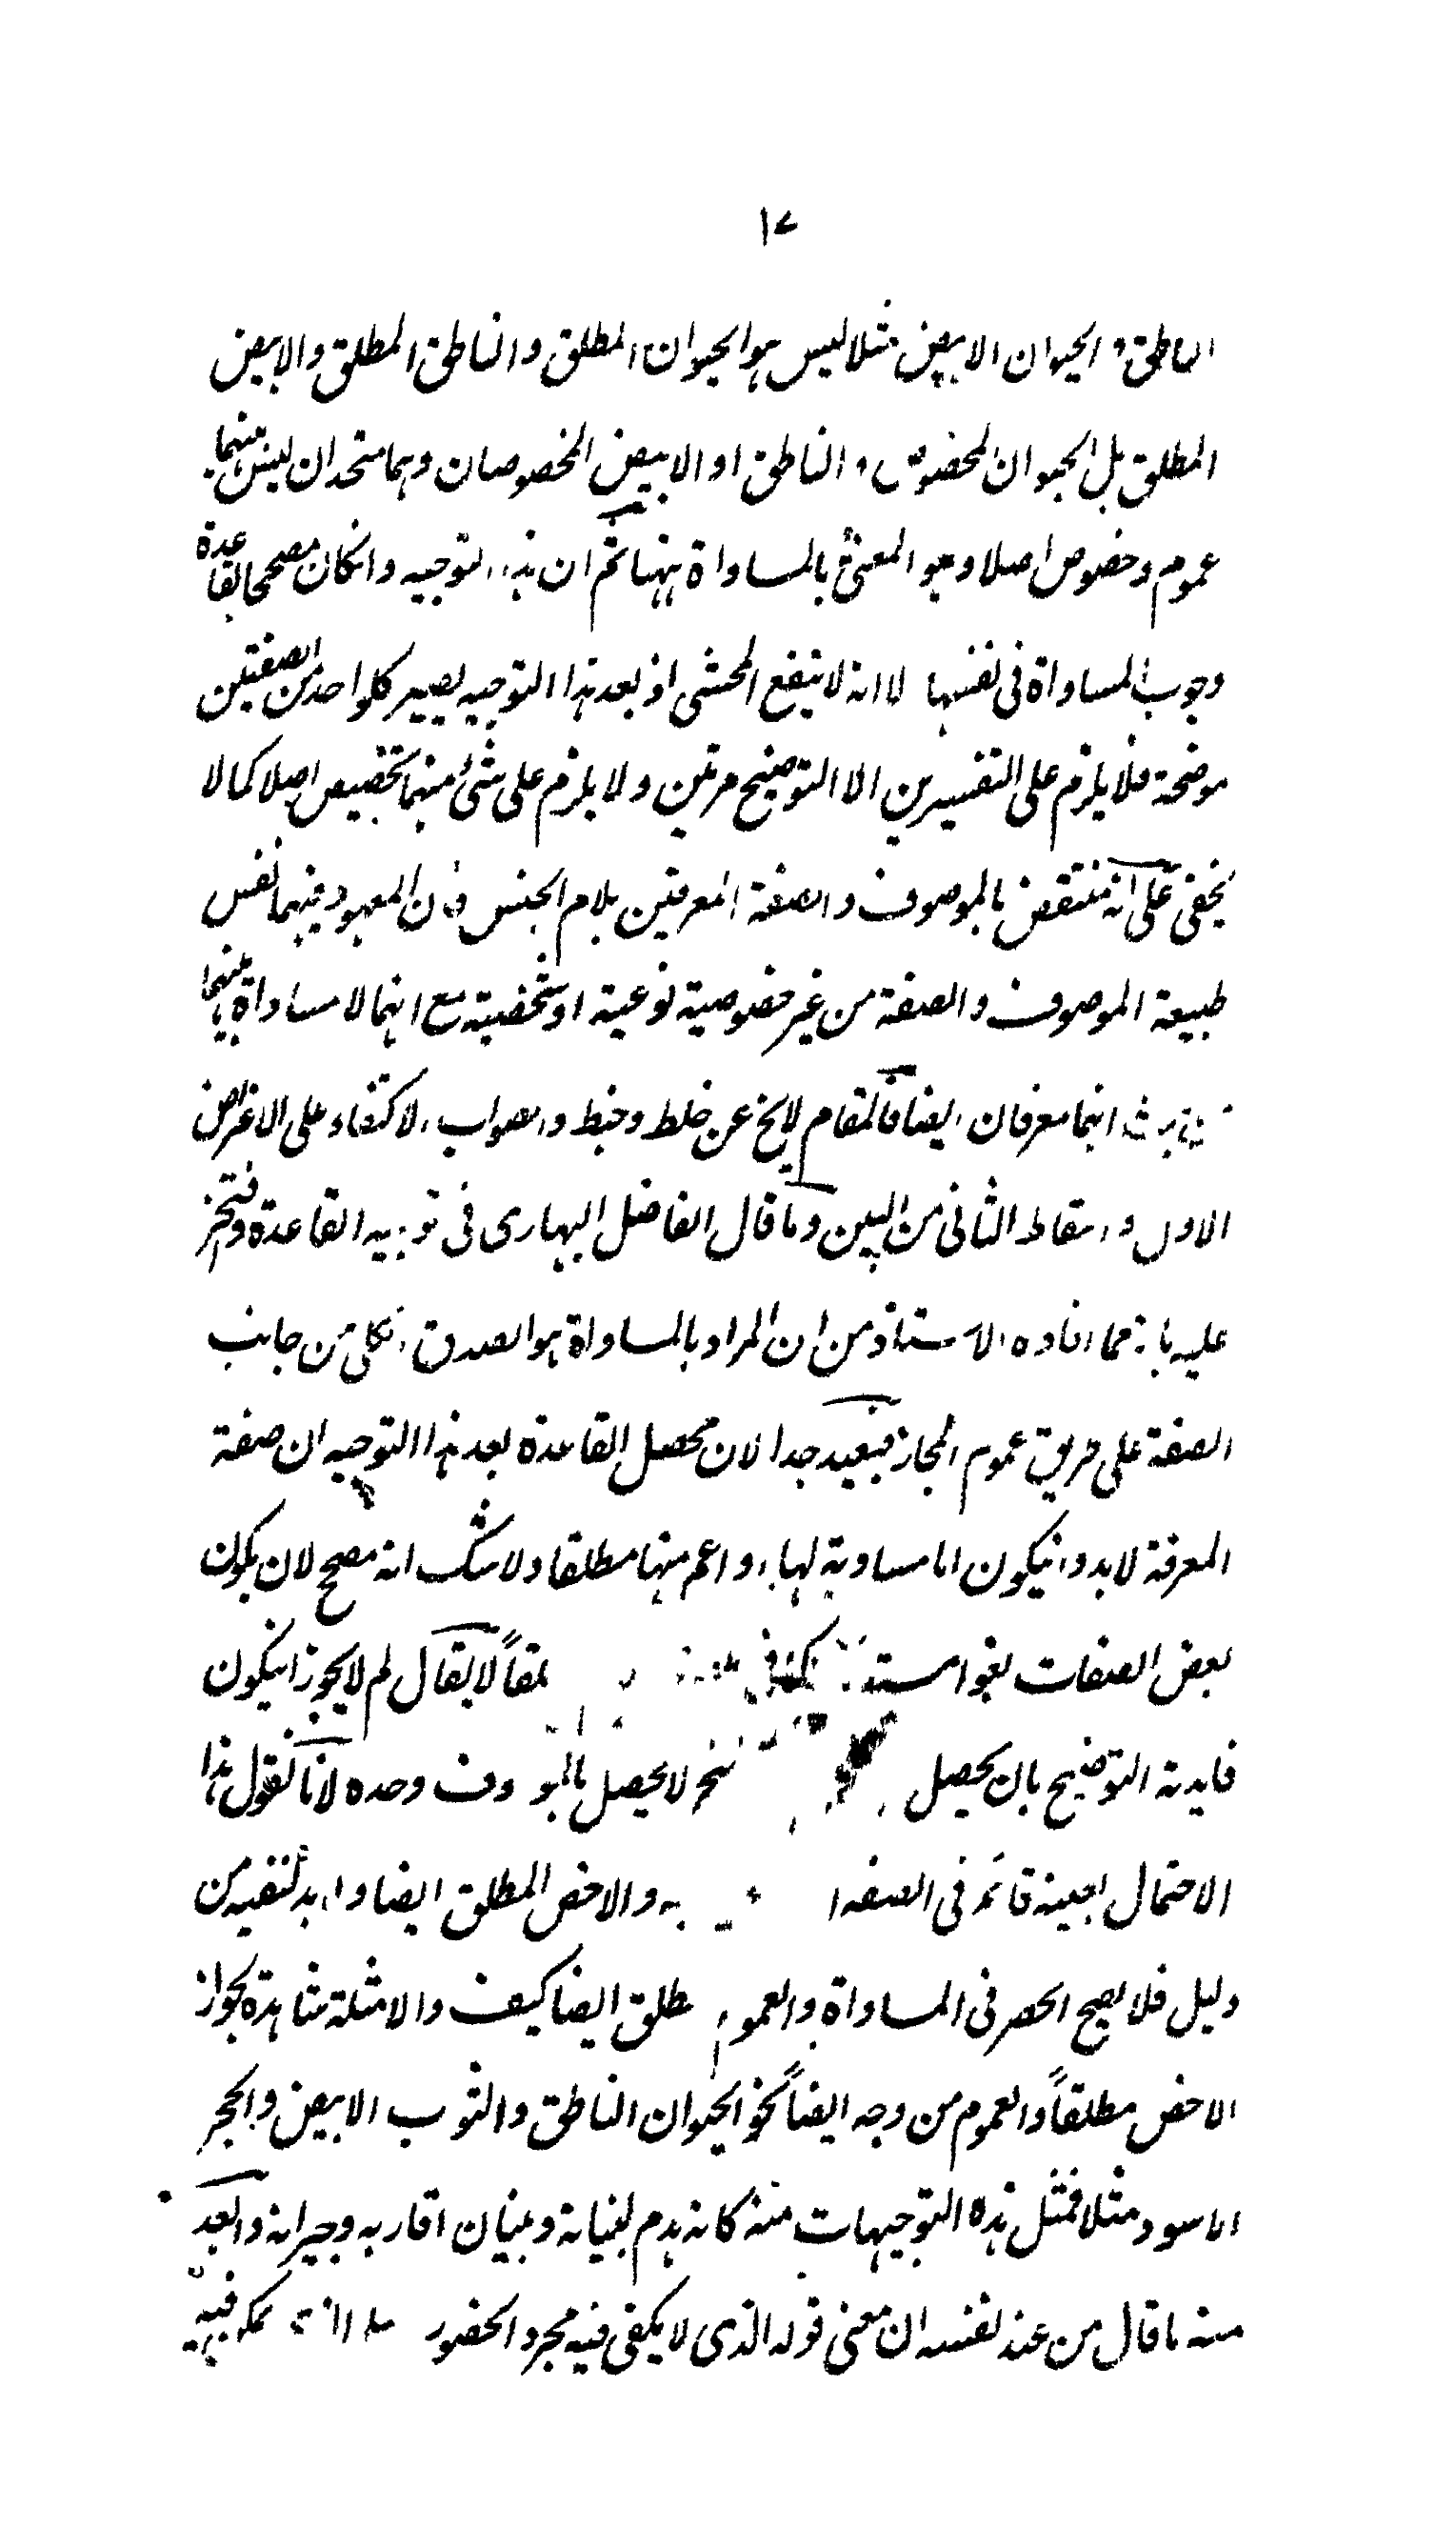 ١٧
الناطق و الحيوان الابيض مثلا ليس هو الحيوان المطلق والناطق المطلق والابيض
المطلق بل الحيوان المخصوص و الناطق او الابيض المخصوصان وهما متحدان ليس بينهما
عموم وخصوص اصلا وهو المعنى بالمساواة ههنا ثم ان هذا التوجيه وانكان مصححا لقاعدة
وجوب المساواة فى نفسها الا انه لا ينفع المحشى اذ بعد هذا التوجيه يصير كلواحد من الصفتين
موضحة فلا يلزم على التفسيرين الا التوضيح مرتين ولا يلزم على شئ منهما تخصيص اصلا كما لا
يخفى على انه منتقض بالموصوف والصفة المعرفتين بلام الجنس فان المعهود فيهما نفس
طبيعة الموصوف والصفة من غير خصوصية نوعية او شخصية مع انهما لا مساواة بينهما
انهما معرفان ايضا فالمقام لا يخ عن خلط وخبط والصواب الاكتفاء على الاعتراض
الاول واسقاط الثانى من البين وما قال الفاضل البهارى فى توجيه القاعدة وفتخر
عليه بانه مما افاده الاستاذ من ان المراد بالمساواة هو الصدق الكلى من جانب
الصفة على طريق عموم المجاز فبعيد جدا لان محصل القاعدة بعد هذا التوجيه ان صفة
المعرفة لابد وانيكون اما مساوية لها او اعم منها مطلقا ولا شك انه مصحح لان يكون
بعض الصفات لغوا لا يقال لم لا يجوز انيكون
فايدته التوضيح بان يحصل لا يحصل بالموصوف وحده لانا نقول هذا
الاحتمال بعينه قائم فى الصفة والاخص المطلق ايضا ولابد لنفيه من
دليل فلا يصح الحصر فى المساواة والعموم المطلق ايضا كيف والامثلة شاهدة بجواز
الاخص مطلقاً والعموم من وجه ايضاً نحو الحيوان الناطق والثوب الابيض والحجر
الاسود مثلا فمثل هذه التوجيهات منه كانه هدم لبنيانه وبنيان اقاربه وجيرانه وابعد
منه ما قال من عند نفسه ان معنى قوله الذى لا يكفى فيه مجرد الحضور